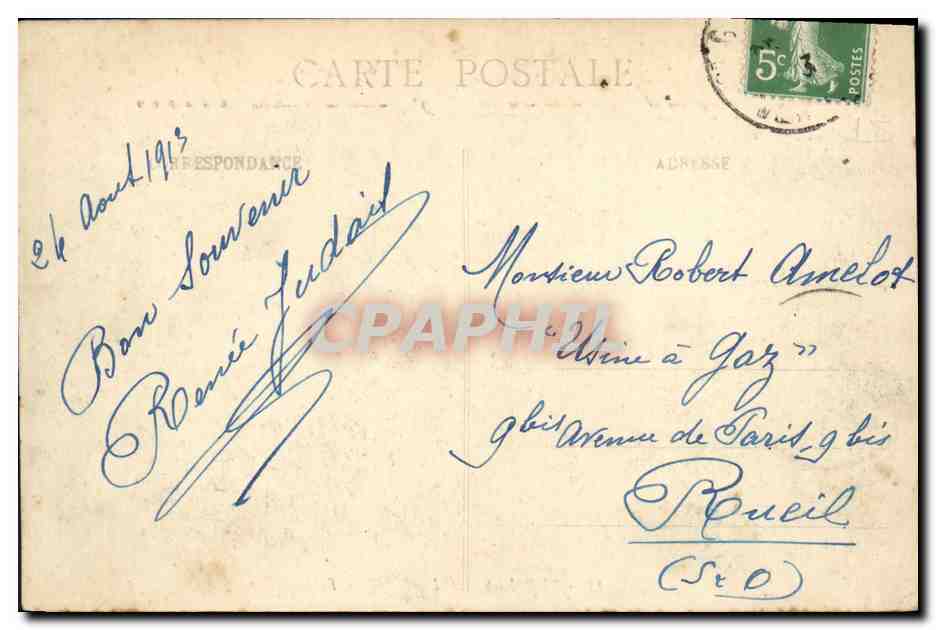 CARTE POSTALE
5c
POSTES
CORRESPONDANCE
ADRESSE
24 Aout 1913
Bon Souvenir
Renée Judait
Monsieur Robert Amelot
"Usine à Gaz"
9 bis Avenue de Paris, 9 bis
Rueil
(S & O)
CPAPHIL